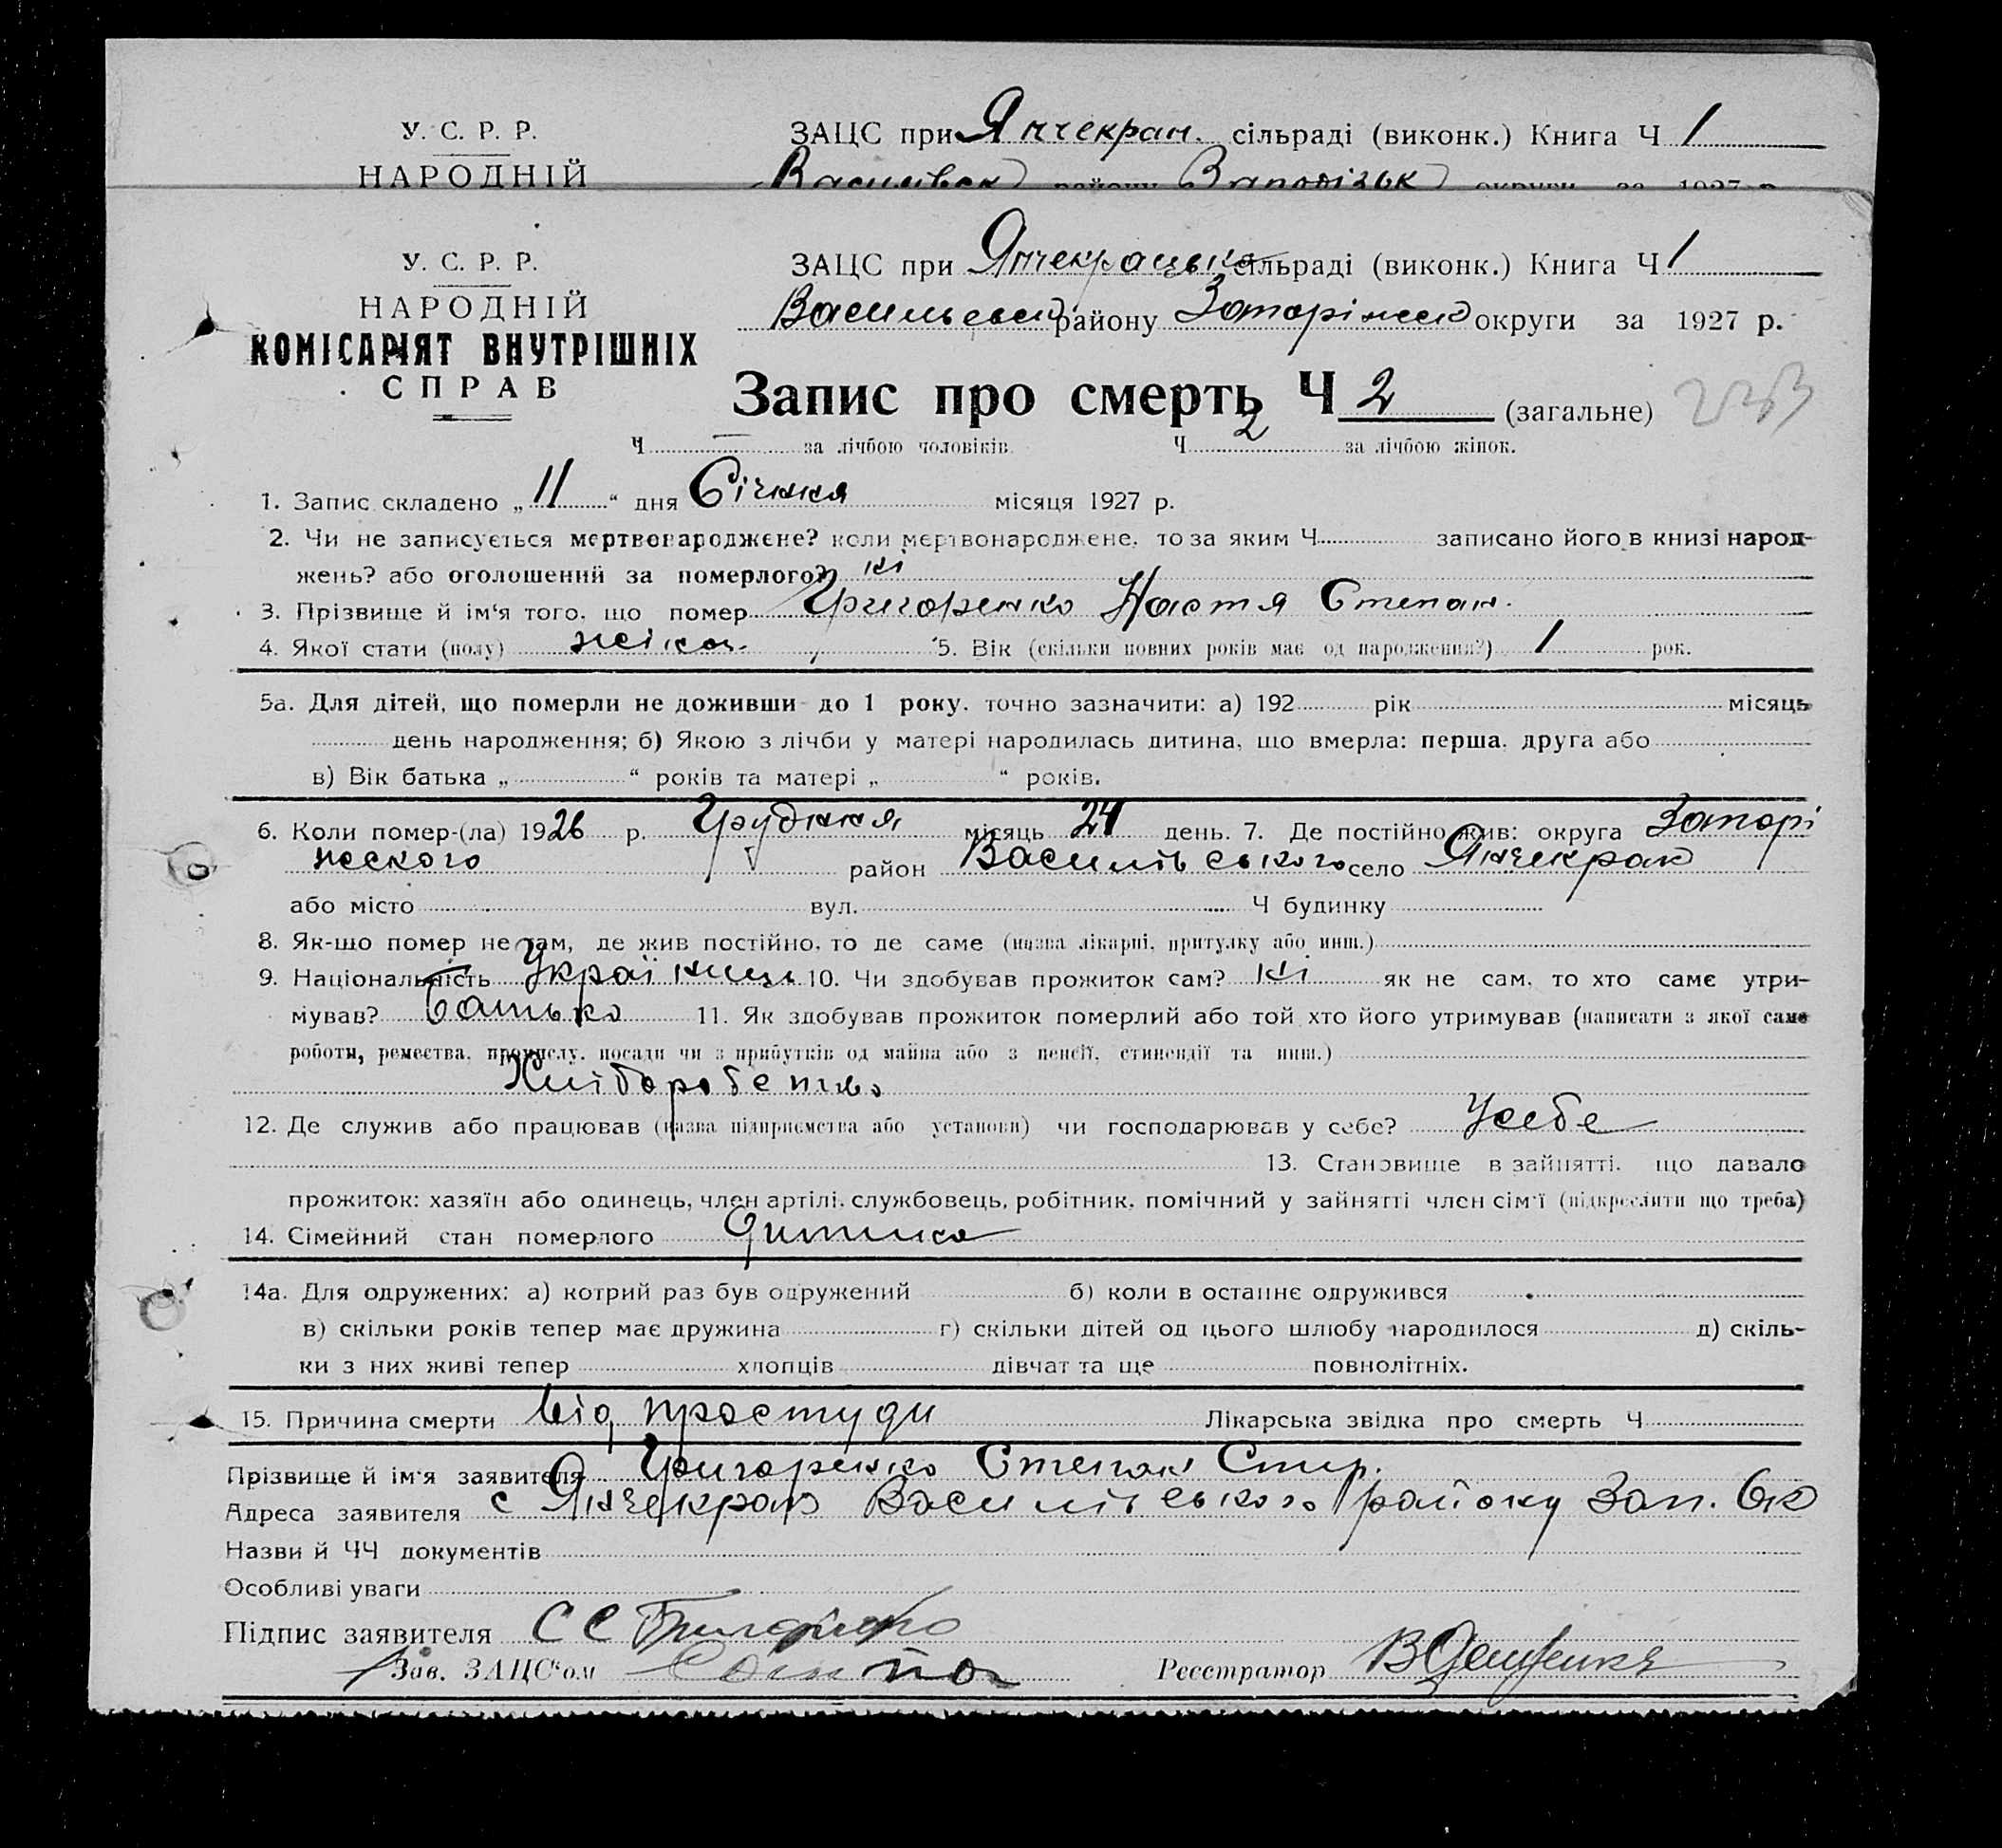 У. С. Р. Р. ЗАЦС при Янчекран. сільраді (виконк.) Книга Ч 1
НАРОДНІЙ Василівськ району Запорізьк округи за 1927 р.
У. С. Р. Р. ЗАЦС при Янчекрацько сільраді (виконк.) Книга Ч 1
НАРОДНІЙ
Васильевск району округи за 1927 р.
КОМІСАРІЯТ ВНУТРІШНІХ
СПРАВ
Запис про смерть Ч 2 (загальне)
Ч за лічбою чоловіків. Ч 2 за лічбою жінок.
1. Запис складено „11“ дня Січння місяця 1927 р.
2. Чи не записується мертвонароджене? коли мертвонароджене, то за яким Ч записано його в книзі народ-
жень? або оголошений за померлого? ні
3. Прізвище й ім'я того, що помер Григоренко Настя Степан.
4. Якої стати (полу) жіноч. 5. Вік (скільки повних років має од народження?) 1 рок.
5а. Для дітей, що померли не доживши до 1 року, точно зазначити: а) 192 рік місяць
день народження; б) Якою з лічби у матері народилась дитина, що вмерла: перша, друга або
в) Вік батька „ “ років та матері „ “ років.
6. Коли помер-(ла) 1926 р. Грудння місяць 24 день. 7. Де постійно жив: округа Запорі
жского район Василівського село Янчекрак
або місто вул. Ч будинку
8. Як-що помер не там, де жив постійно, то де саме (назва лікарні, притулку або инш.)
9. Національність Українець 10. Чи здобував прожиток сам? ні як не сам, то хто саме утри-
мував? Батько 11. Як здобував прожиток померлий або той хто його утримував (написати з якої саме
роботи, ремества, промислу, посади чи з прибутків од майна або з пенсії, стипендії та инш.)
Хліборобство
12. Де служив або працював (назва підприємства або установи) чи господарював у себе? Усебе
13. Становище в зайнятті, що давало
прожиток: хазяїн або одинець, член артілі, службовець, робітник, помічний у зайнятті член сім'ї (підкреслити що треба)
14. Сімейний стан померлого Дитина
14а. Для одружених: а) котрий раз був одружений б) коли в останнє одружився
в) скільки років тепер має дружина г) скільки дітей од цього шлюбу народилося д) скіль-
ки з них живі тепер хлопців дівчат та ще повнолітніх.
15. Причина смерти від простуди Лікарська звідка про смерть Ч
Прізвище й ім'я заявителя Григоренко Степан Спир.
Адреса заявителя с Янчекрак Василівського району Зап. Ок
Назви й ЧЧ документів
Особливі уваги
Підпис заявителя С С Григоренко
Зав. ЗАЦС'ом Реєстратор